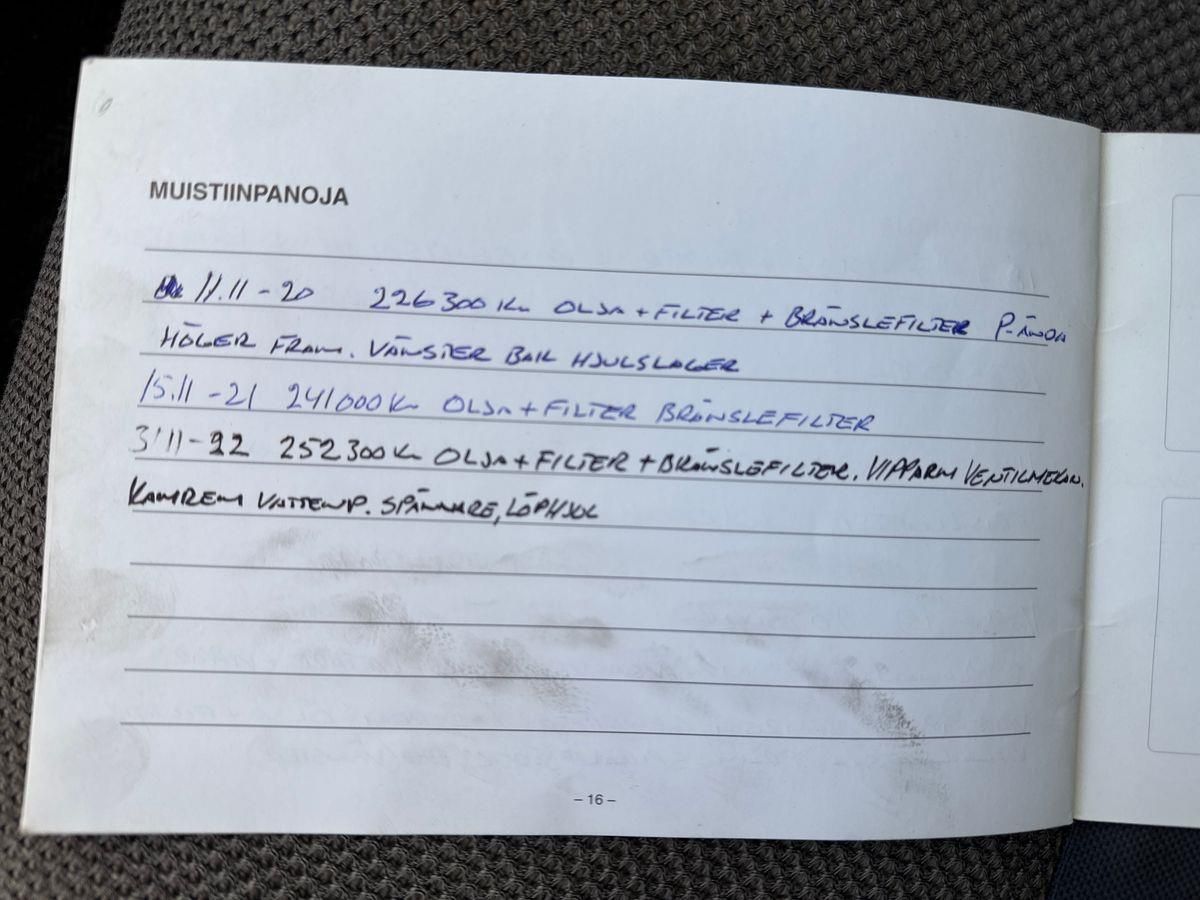 MUISTIINPANOJA
11.11-20 226300 Km OLJA + FILTER + BRÄNSLEFILTER P-ÄNDA
HÖGER FRAM. VÄNSTER BAK HJULSLAGER
15.11-21 241000 Km OLJA + FILTER BRÄNSLEFILTER
3'11-22 252300 Km OLJA + FILTER + BRÄNSLEFILTER. VIPPARM VENTILMEKAN.
KAMREM VATTENP. SPÄNNARE, LÖPHJUL
– 16 –